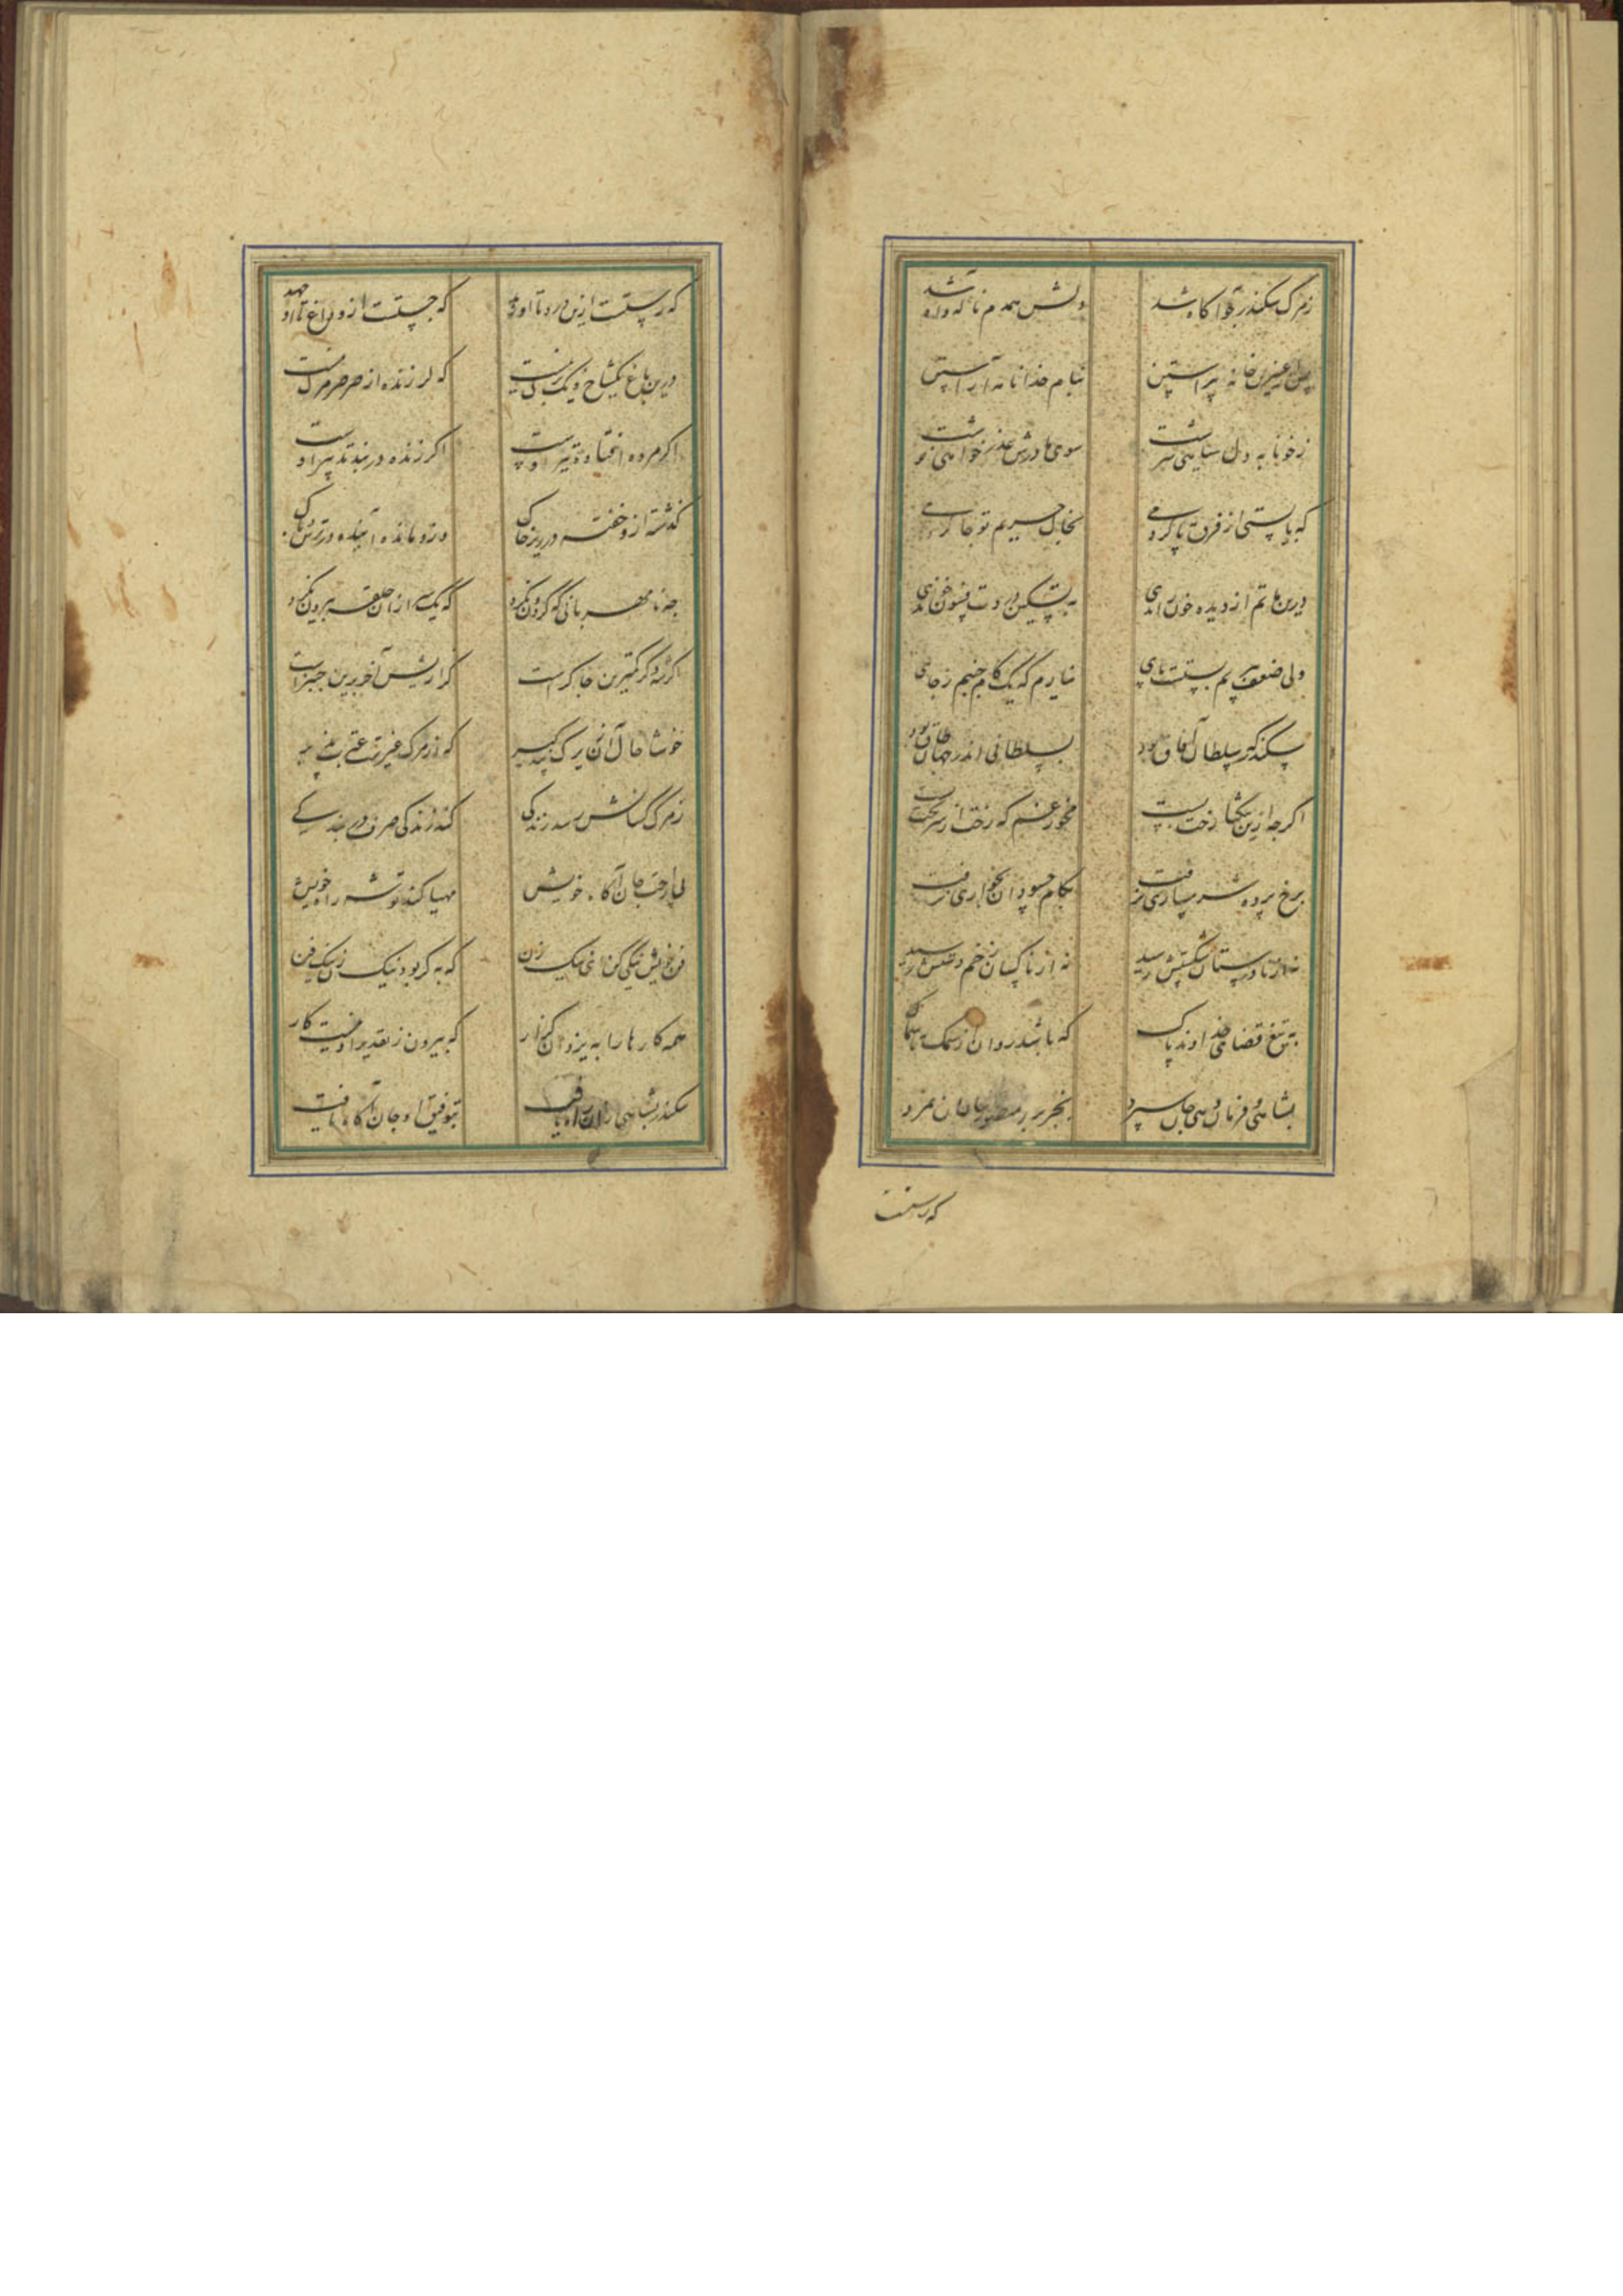 ز مرک سکندر چو آکاه شد دلش همدم ناله و آه شد
پس از عنبرین خامه پیراستن بنام خدا نامه آراستن
ز خونابه دل سیاهی سرشت سوی مادرش عذرخواهی نوشت
که بایستی از فرق پا کردمی بخاک حریم تو جا کردمی
درین ماتم از دیده خون راندمی به تسکین دردت فسون خواندمی
ولی ضعف پیریم بستست پای نیارم که یک کام جنبم ز جای
سکندر که سلطان آفاق بود بسلطانی اندر جهان طاق بود
اکر چه ازین تنکنا رخت بست مخور غم که رخت از سر تخت بست
برخ پرده شرمساری نرفت بکام حسودان بخواری نرفت
نه از نادرستان شکستش رسید نه از ناکسان زخم دستش رسید
به تیغ قضای خداوند پاک که باشد روان از سمک تا سماک
بشاهی و فرمان دهی جان سپرد
که رستست
که رستست ازین درد تا او رهد که جستست ازو داغ تا او جهد
درین باغ یکشاخ و یک برک نیست که لرزنده از صرصر مرک نیست
اکر مرده افتاده تیر اوست اکر زنده در بند تدبیر اوست
گذشته ازو خفته در زیر خاک درو مانده آینده در ترس و باک
چه نامهربانی که گردون نکرد که یک سر ازان حلقه بیرون نکرد
اکر شه و کر کمترین چاکرست گذاریش آخر برین چنبرست
خوشا حال آن زیرک پندگیر که از مرک غیرت عبرت پذیر
ز مرک کسانش رسد زندکی کند زندکی صرف در بندکی
پی راحت جان آکاه خویش مهیا کند توشه راه خویش
فن خویش نیکی کن ای نیک زن که به کر بود نیک زن نیک فن
همه کارها را به یزدان گذار که بیرون ز تقدیر او نیست کار
سکندر بشاهی ازان راه یافت بتوفیق او جان آکاه یافت